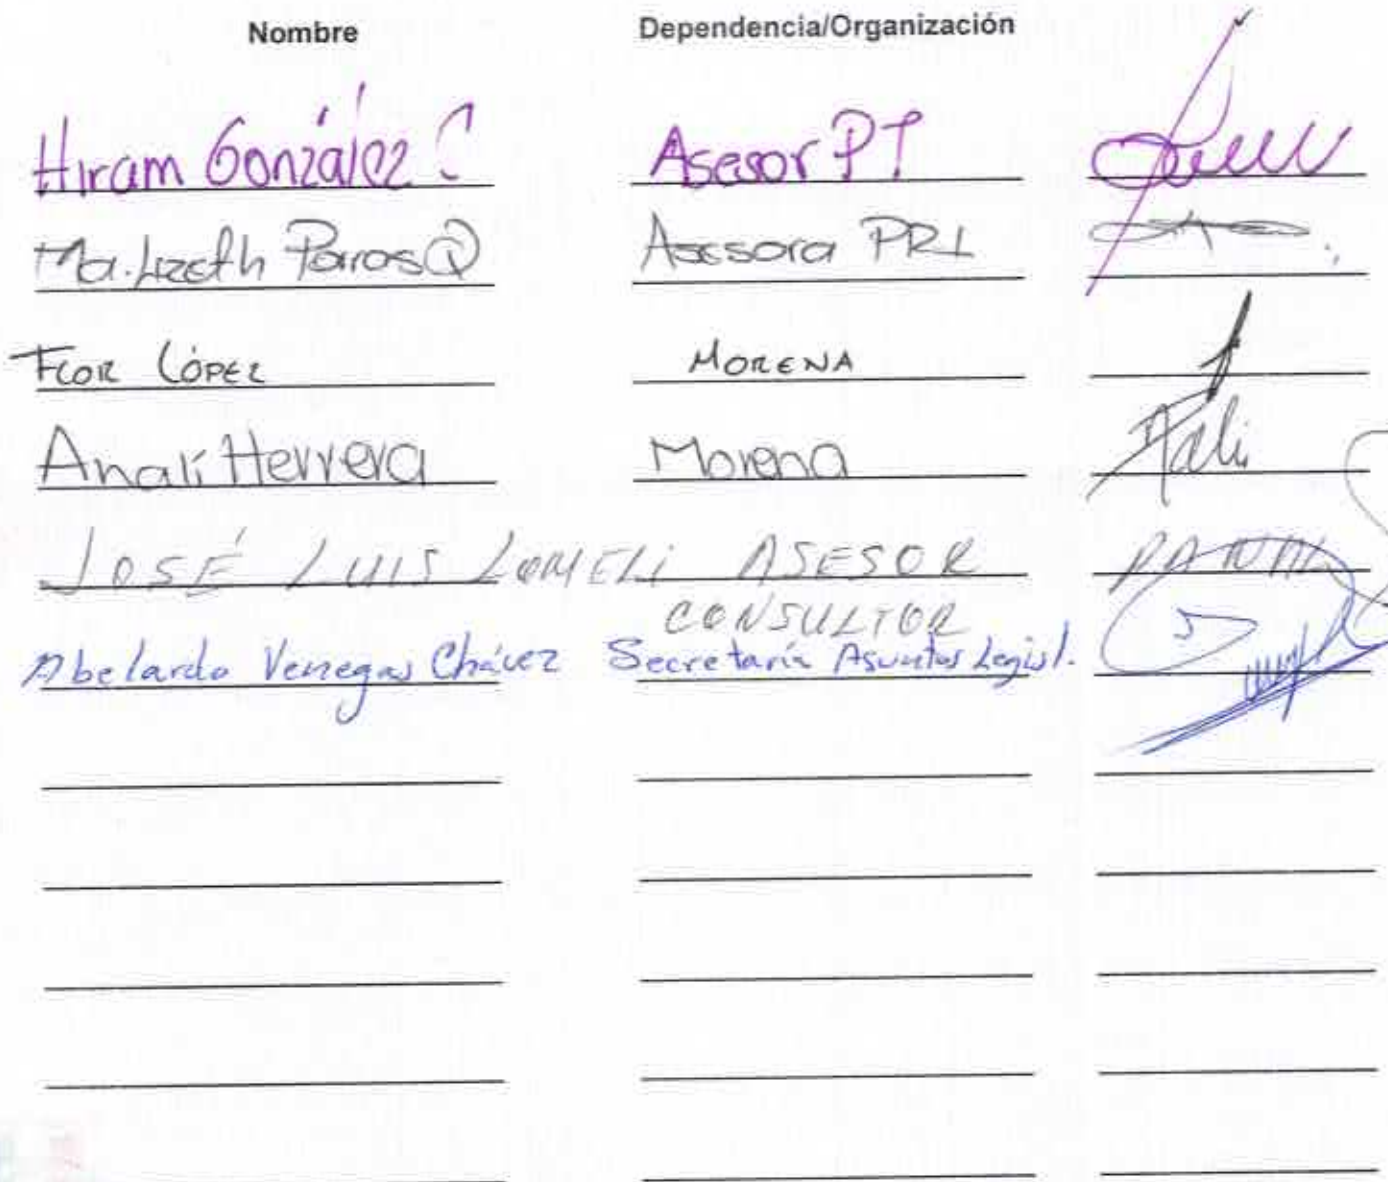 Nombre Dependencia/Organización
Hiram González C Asesor PT
Ma. Lizeth Parras Q Asesora PRI
FLOR LÓPEZ MORENA
Analí Herrera Morena
JOSÉ LUIS LOMELI ASESOR
CONSULTOR
Abelardo Venegas Chávez Secretaría Asuntos Legisl.